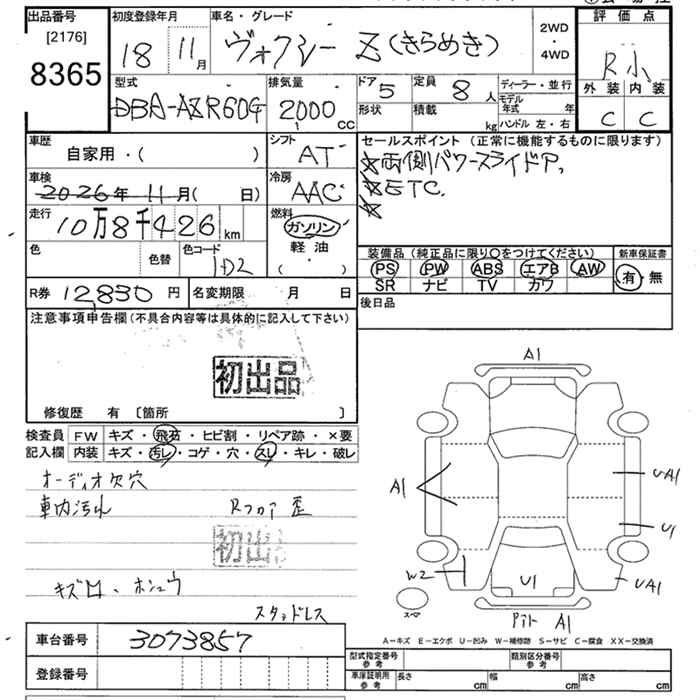 出品番号
[2176]
8365
初度登録年月
18 11月
車名・グレード
ヴォクシー Z (きらめき)
2WD
・
4WD
評価点
R小
外装 内装
C C
型式
DBA-AZR60G
排気量
2000 CC
ドア 5
定員 8人
形状
積載 kg
ディーラー・並行
モデル年式 年
ハンドル 左・右
車歴
自家用・( )
シフト
AT
セールスポイント (正常に機能するものに限ります)
両側パワースライドドア,
ETC.
車検
2026年 11月( 日)
冷房
AAC
走行
10万8千426 km
燃料
ガソリン
軽油
( ・ )
色
色替
色コード
1D2
装備品 (純正品に限り○をつけてください)
PS PW ABS エアB AW
SR ナビ TV カワ
新車保証書
有・無
R券 12,830円
名変期限 月 日
後日品
注意事項申告欄 (不具合内容等は具体的に記入して下さい)
初出品
修復歴 有 [箇所 ]
検査員記入欄
FW キズ・飛石・ヒビ割・リペア跡・×要
内装 キズ・汚レ・コゲ・穴・スレ・キレ・破レ
オーディオ欠穴
車内汚れ Rフロア歪
初出品
キズ凹・ホシュウ
スタッドレス
A1
A1
UA1
U1
W2
U1
UA1
スペア
A1
A-キズ E-エクボ U-凹み W-補修跡 S-サビ C-腐食 XX-交換済
車台番号
3073857
登録番号
型式指定番号
参考
類別区分番号
参考
車庫証明用
参考
長さ cm
幅 cm
高さ cm